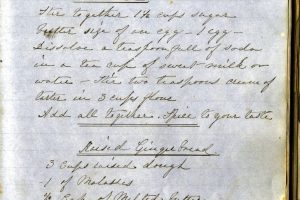 Stir together 1½ cups sugar
butter size of an egg - 1 egg -
Dissolve a teaspoonfull of soda
in a tea cup of sweet milk or
water - Stir two teaspoons cream of
tartar in 3 cups flour
Add all together. Spice to your taste
Raised Gingerbread
3 cups raised dough
1 of Molasses
Cup of Melted butter